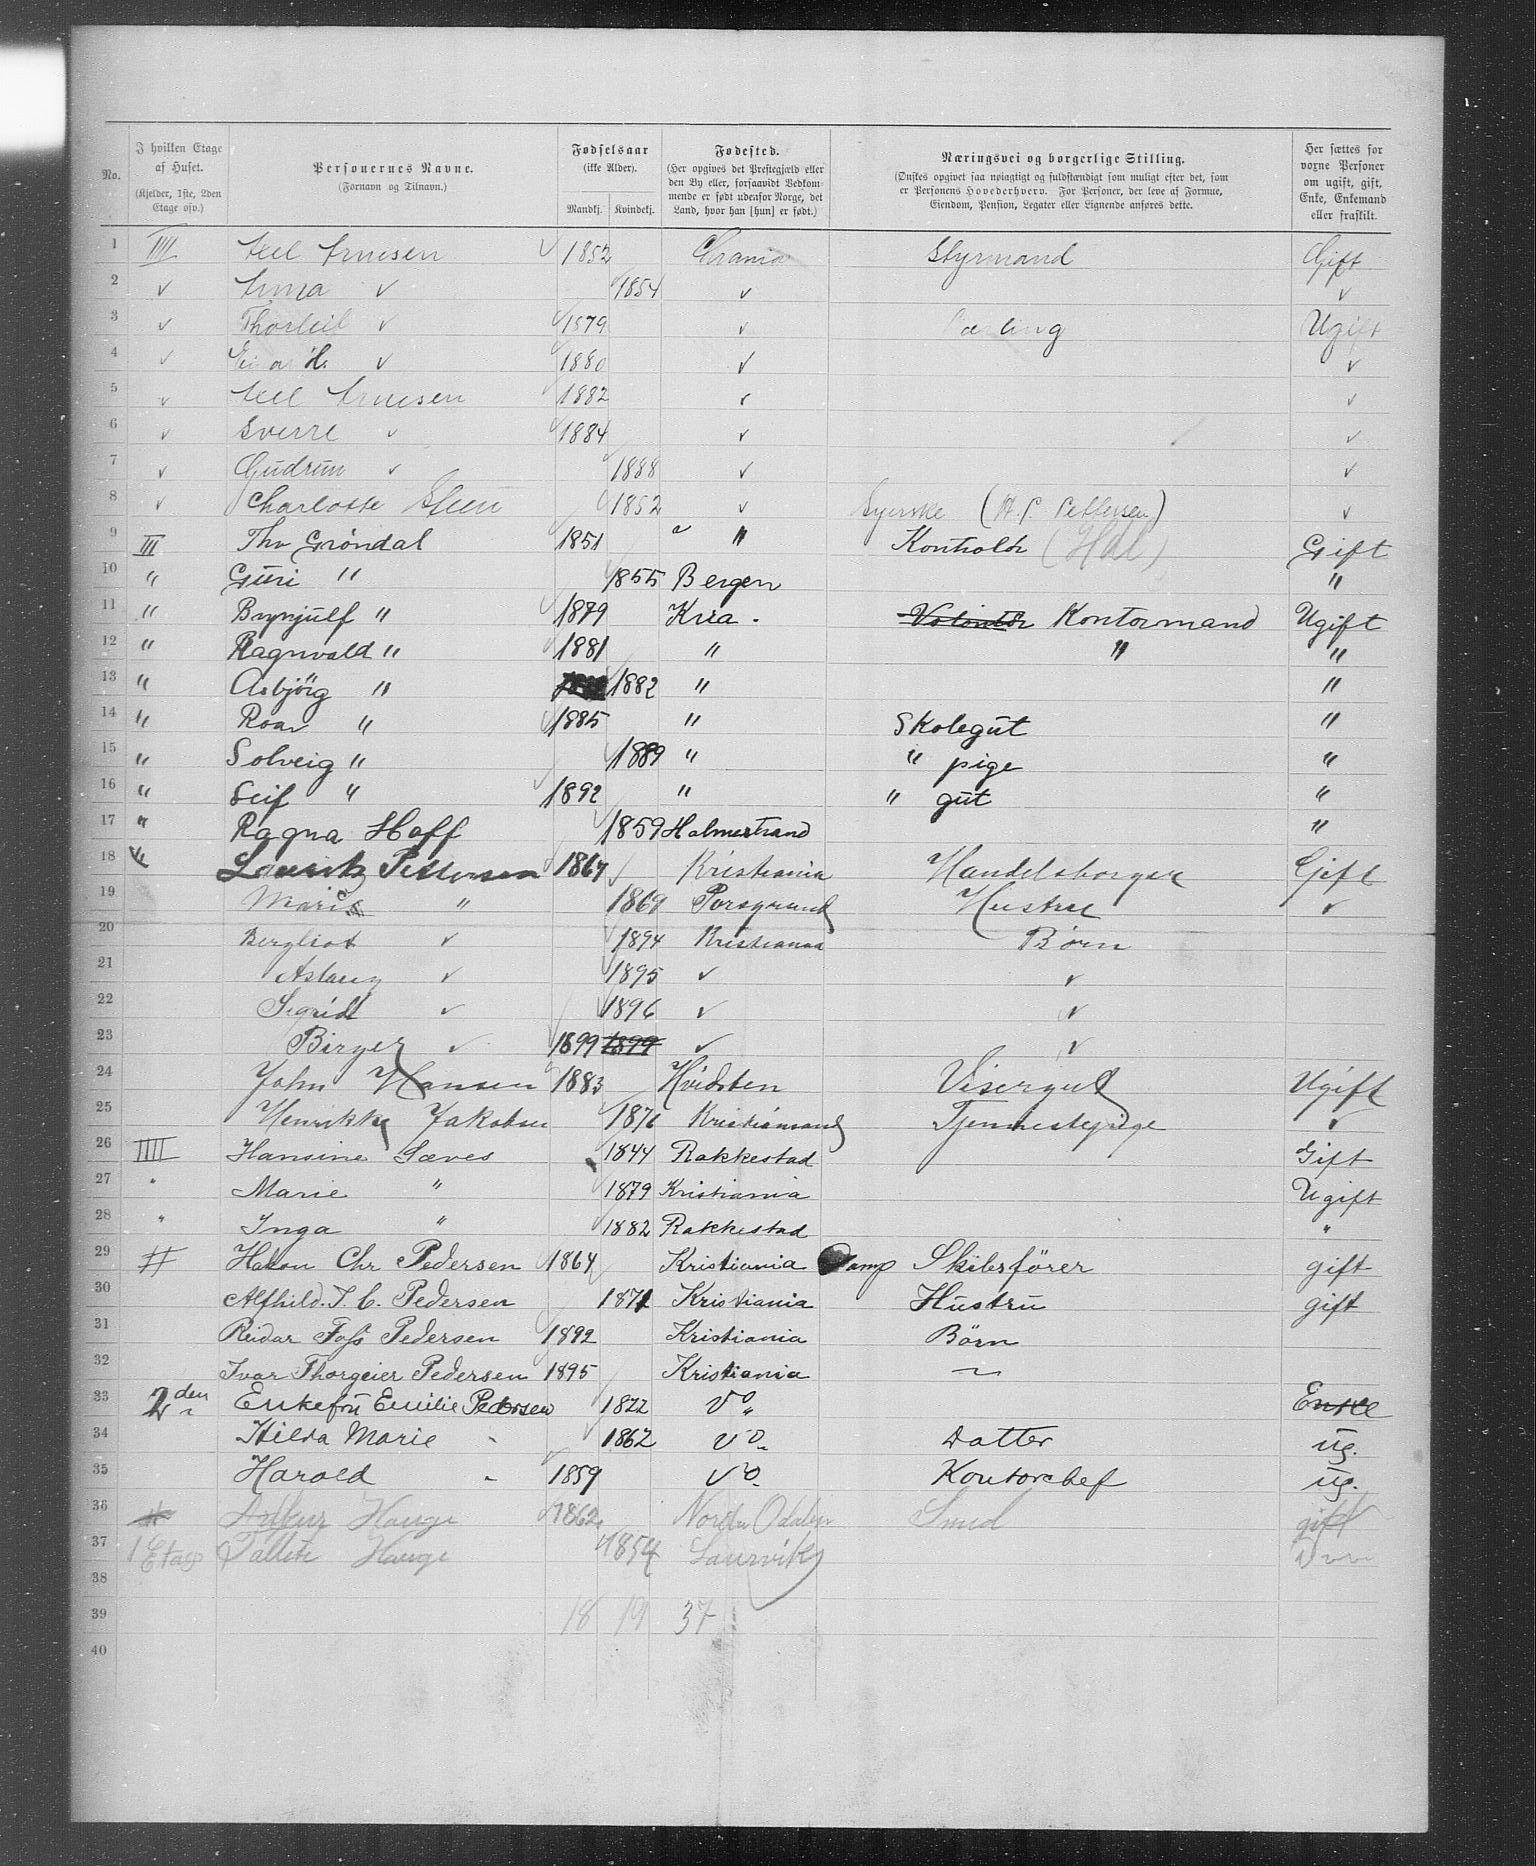 No.
I hvilken Etage af Huset. (Kjelder, 1ste, 2den Etage osv.)
Personernes Navne. (Fornavn og Tilnavn.)
Fødselsaar (ikke Alder). Mandkj. Kvindekj.
Fødested. (Her opgives det Prestegjæld eller den By eller, forsaavidt Bedkommende er født udenfor Norge, det Land, hvor han [hun] er født.)
Næringsvei og borgerlige Stilling. (Ønskes opgivet saa nøiagtigt og fuldstændigt som muligt efter det, som er Personens Hovederhverv. For Personer, der leve af Formue, Eiendom, Pension, Legater eller Lignende anføres dette.)
Her sættes for voxne Personer om ugift, gift, Enke, Enkemand eller fraskilt.
1 IIII 1852 Chrania Styrmand Gift
2 ✓ Anna ✓ 1854 ✓ ✓
3 ✓ Thorleif ✓ 1879 ✓ Lærling Ugift
4 ✓ Einar H. ✓ 1880 ✓ ✓
5 ✓ 1882 ✓ ✓
6 ✓ Sverre ✓ 1884 ✓ ✓
7 ✓ Gudrun ✓ 1888 ✓ ✓
8 ✓ Charlotte Steen 1852 ✓ Syerske (H. P. Pettersen) ✓
9 III Thv Grøndal 1851 " Kontrolør Gift
10 " Guri " 1855 Bergen "
11 " Brynjulf " 1879 Kria. Volontør Kontormand Ugift
12 " Ragnvald " 1881 " " "
13 " Asbjörg " 1882 " "
14 " Roar " 1885 " Skolegut "
15 " Solveig " 1889 " " pige "
16 " Leif " 1892 " " gut "
17 " Ragna Hoff 1859 Holmestrand "
18 Lauritz Pettersen 1867 ✓ Kristiania Handelsborger Gift
19 Marie " 1869 Porsgrund Hustru ✓
20 Bergliot ✓ 1894 Kristiania Børn
21 Aslaug ✓ 1895 ✓ ✓
22 Sigrid ✓ 1896 ✓ ✓
23 Birger ✓ 1899 1899 ✓ ✓
24 John Hansen 1883 Hvidsten Visergut Ugift
25 Henrikke Jakobsen 1876 Kristiansand Tjennestepige ✓
26 IIII Hansine Sæves 1844 Rakkestad Gift
27 " Marie " 1879 Kristiania Ugift
28 " Inga " 1882 Rakkestad "
29 II Hakon Chr Pedersen 1864 Kristiania Damp Skibsfører gift
30 Alfhild. J. C. Pedersen 1871 Kristiania Hustru gift
31 Reidar Foss Pedersen 1892 Kristiania Børn
32 Ivar Thorgeier Pedersen 1895 Kristiania
33 2den Enkefru Emilie Pedersen 1822 Enke
34 Hilda Marie 1862 Datter ug.
35 Harald 1859 Kontorchef ug.
36 Hauge 1862 Nordre Odalen Smed gift
37 1 Etage Hauge 1854 Laurvik
38
39 18 19 37
40